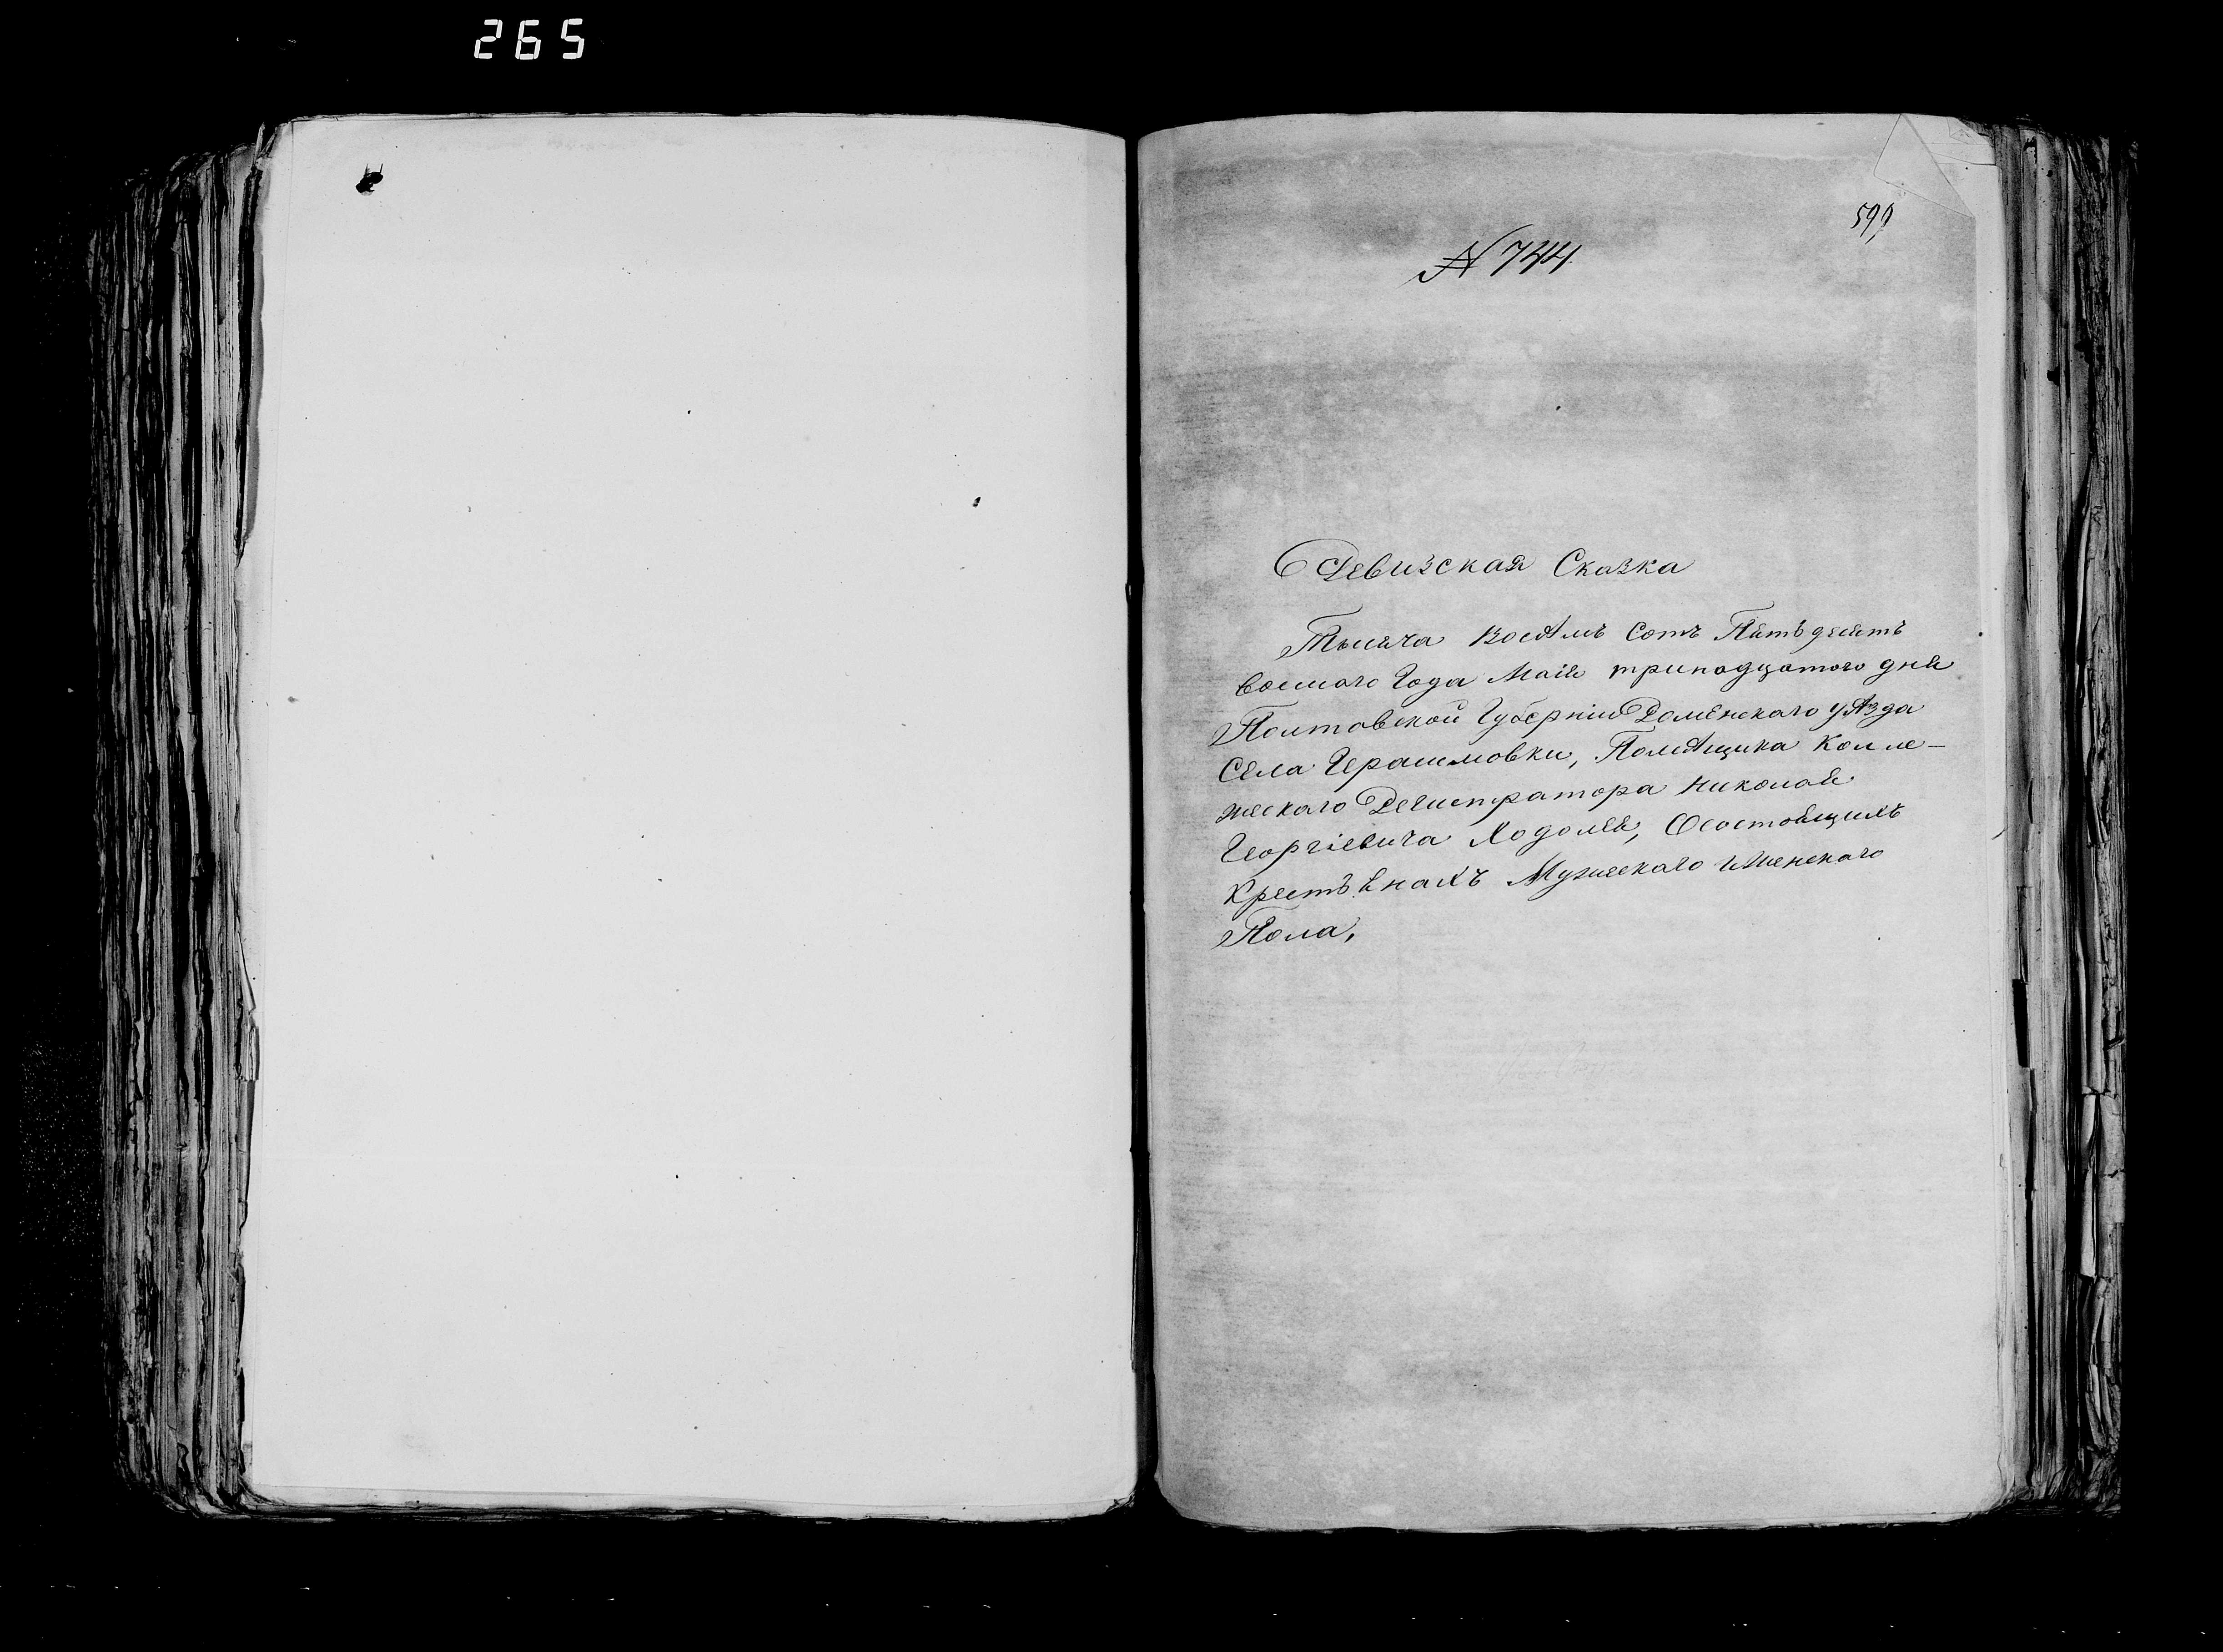 265
599
№ 744
Ревизская Сказка
Тысяча восѣмъ сотъ Пятъдесятъ
восмаго Года Маія тринадцатого дня
Полтавской Губерніи Роменскаго уѣзда
Села Герасимовки, Помѣщика Колле-
жескаго Регистратора Николая
Георгіевича Ходолея, О состоящихъ
Крестъянахъ Мужескаго и Женскаго
Пола,